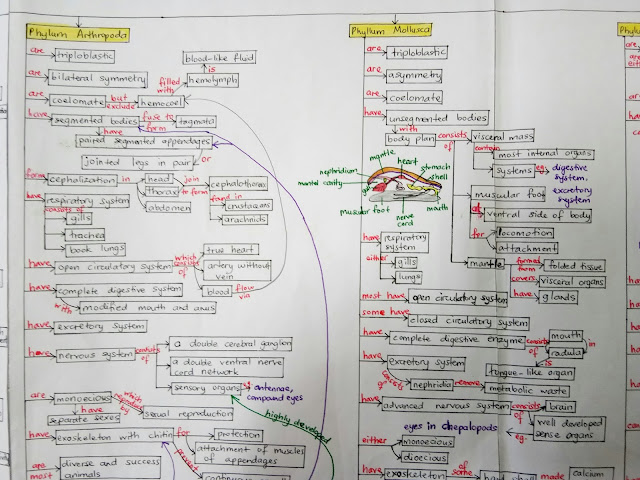 Phylum Arthropoda
are triploblastic
are bilateral symmetry
blood-like fluid
is
hemolymph
filled with
are coelomate but exclude hemocoel
have segmented bodies fuse to form tagmata
have
paired segmented appendages
or
jointed legs in pair
form cephalization in head join to form cephalothorax
thorax
abdomen
found in
crustaceans
arachnids
have respiratory system
consists of
gills
trachea
book lungs
have open circulatory system which consists of true heart
artery without vein
blood flow via
have complete digestive system
with modified mouth and anus
have excretory system
have nervous system consists of
a double cerebral ganglion
a double ventral nerve cord network
sensory organs eg. antennae, compound eyes
highly developed
are monoecious which reproduce by sexual reproduction
have
separate sexes
have exoskeleton with chitin for protection
attachment of muscles of appendages
are most diverse and success animals
prevent
Phyllum Mollusca
are triploblastic
are asymmetry
are coelomate
have unsegmented bodies
with
body plan consists of visceral mass
contain
most internal organs
systems eg. digestive system,
excretory system
muscular foot
at ventral side of body
for locomotion
attachment
mantle formed from folded tissue
covers visceral organs
have glands
mantle
heart
nephridium
stomach
shell
mantel cavity
gut
muscular foot
nerve cord
mouth
have respiratory system
either gills
lungs
most have open circulatory system
some have closed circulatory system
have complete digestive enzyme consists of mouth
in
radula
is
tongue-like organ
have excretory system
consists of nephridia remove metabolic waste
have advanced nervous system consists of brain
well developed sense organs
eg. eyes in chepalopods
either monoecious
dioecious
have exoskeleton of some
hard shell made calcium